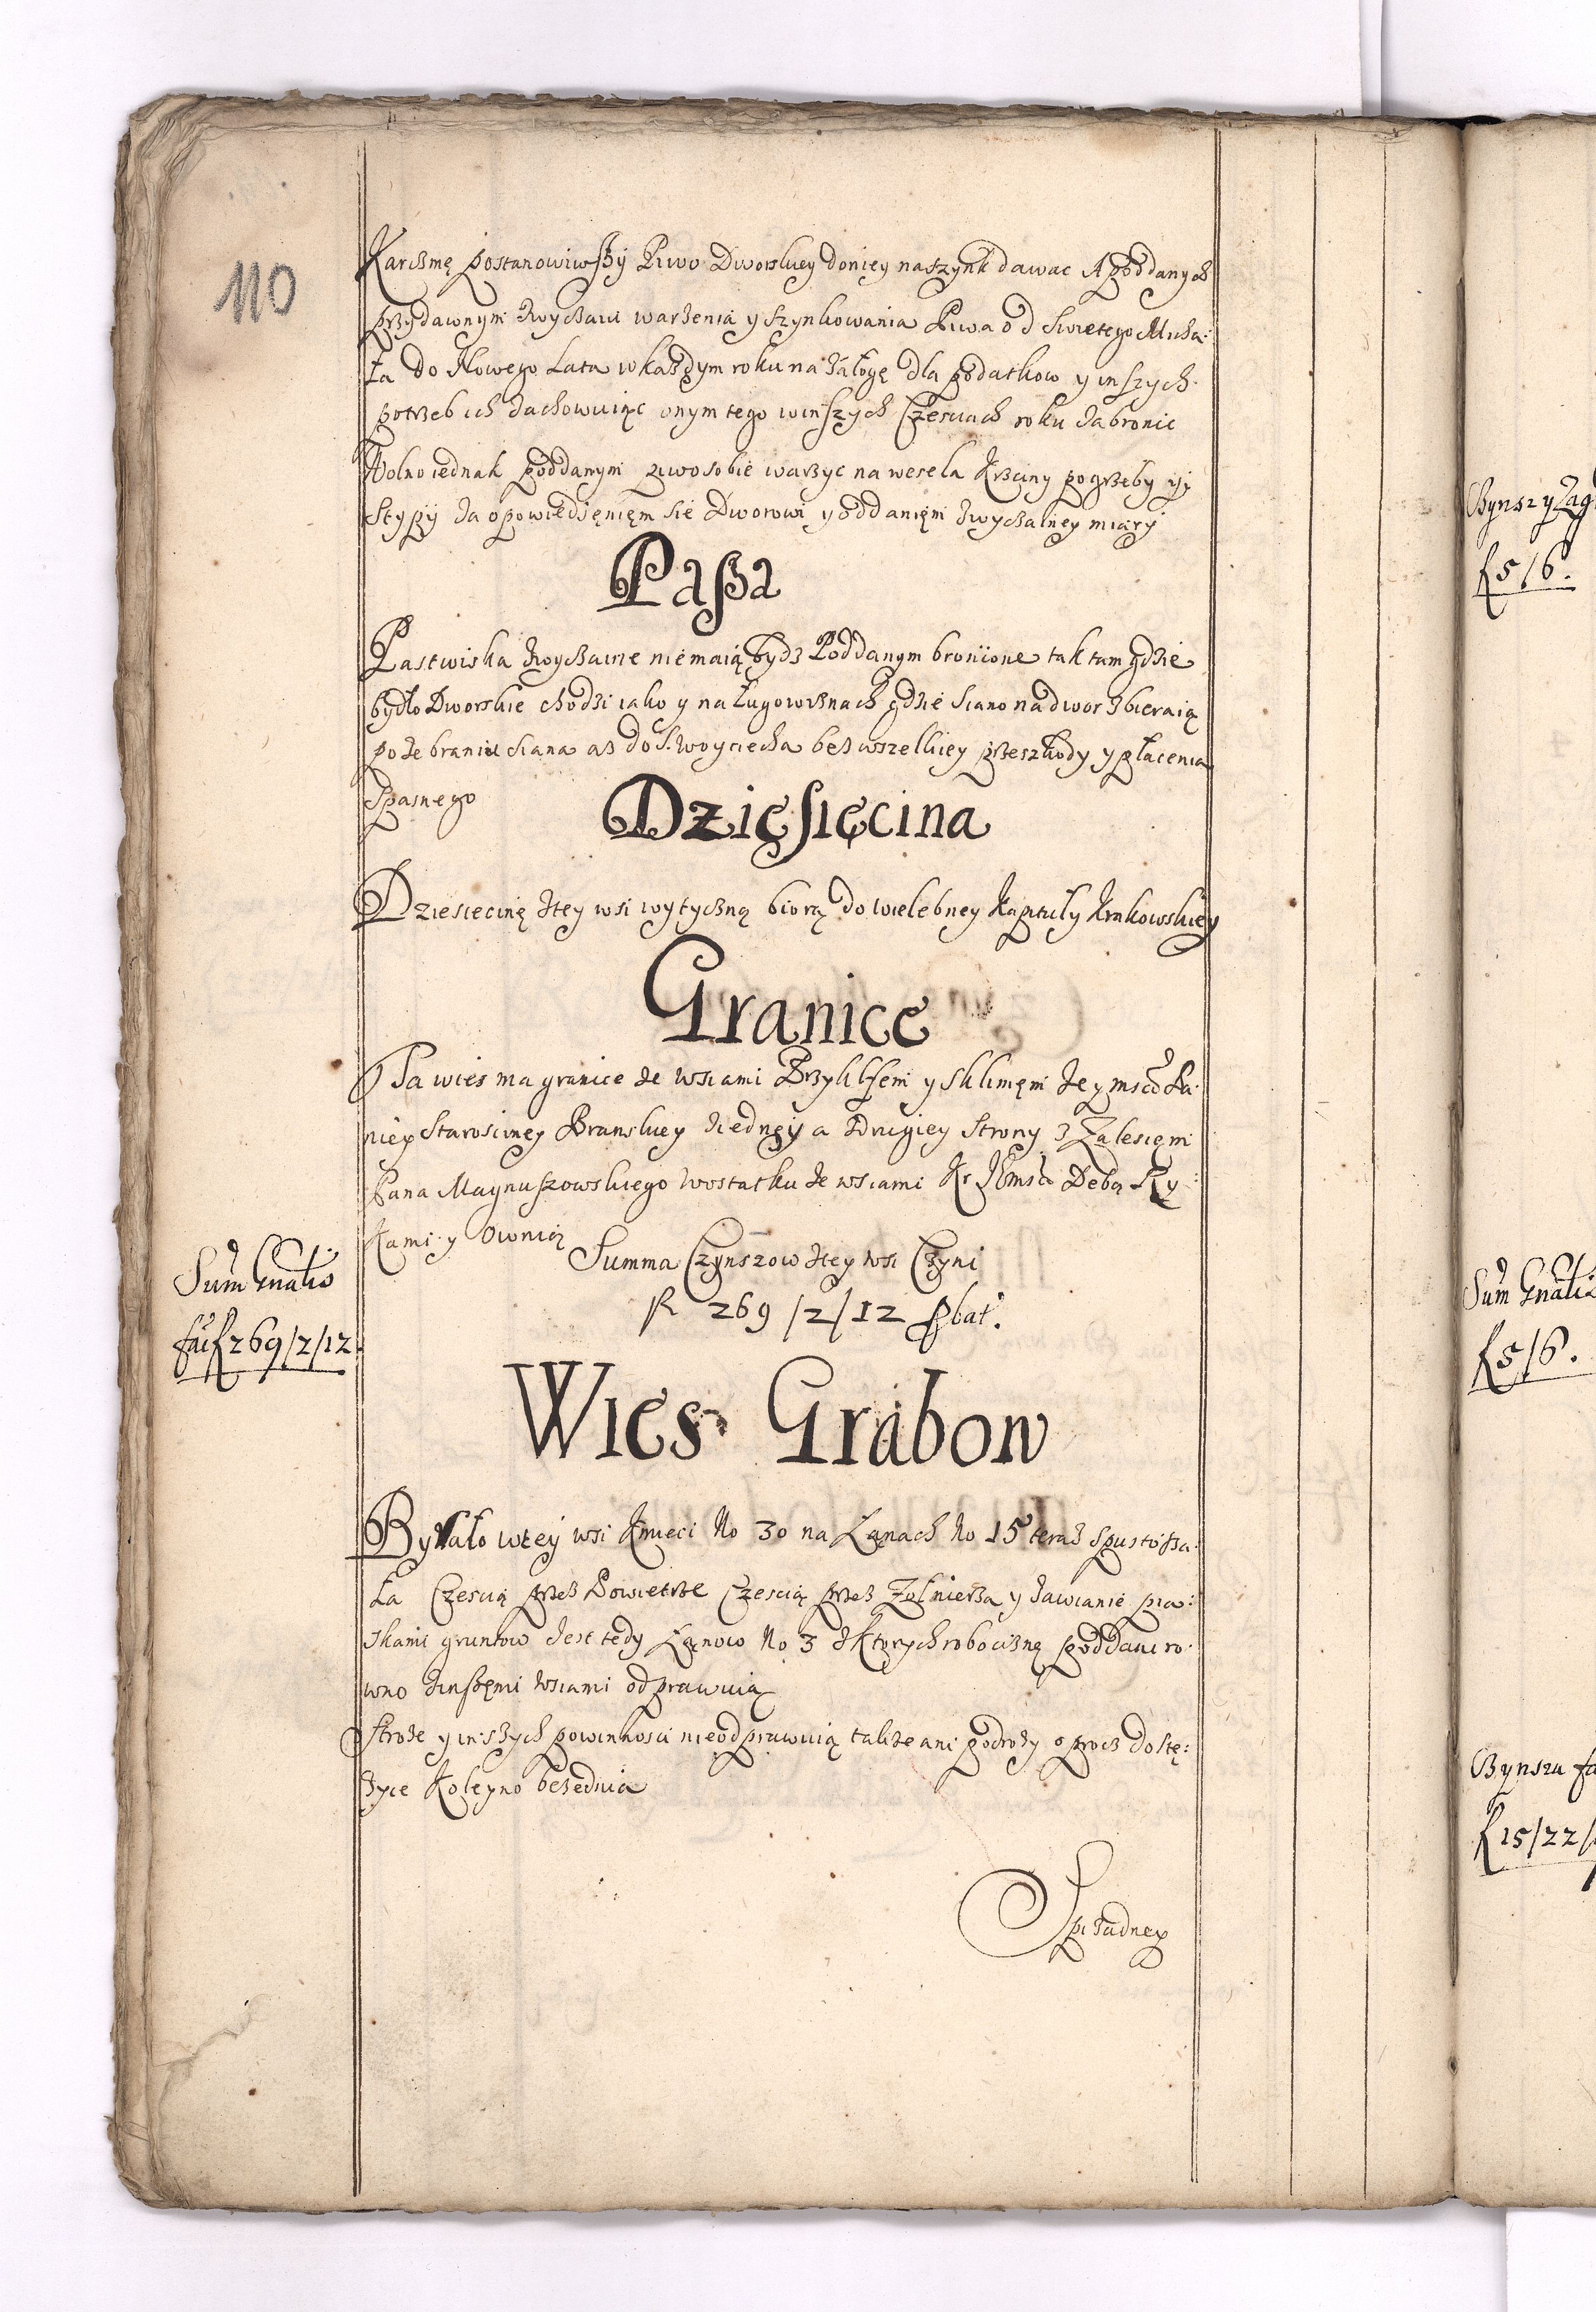 110
Karczmę postanowiwszy Piwo Dworskiey doniey naszynk dawac A poddanych
przydawnym zwyczaiu warzenia y szynkowania Piwa od Swietego Micha:
ła do Nowego Lata wkażdym roku na załogę dla podatkow y inszych
potrzeb ich zachowuiąc onym tego winszych Częsciach roku zabronic
Wolno iednak poddanym piwo sobie warzyc na wesela Krzciny pogrzeby y
Stypy za opowiedzięnięm się Dworowi y oddanięm zwyczalney miary
Pasza
Pastwiska zwyczaine niemaią bydz Poddanym bronione tak tam gdzie
bydło Dworskie chodzi iako y na Ługowiznach gdzie siano na dwor zbieraią
po zebraniu siana az do S. Woyciecha bez wszelkiey przeszkody y płacenia
Spasnego
Dzięsięcina
Dziesiecinę ztey wsi wytyczną biorą do wielebney Kapituły Krakowskiey
Granice
Ta wies ma granice ze wsiami y Jeymsci Pa:
niey Starosciney Branskiey ziedney a zdrugiey Strony z Zalesięm
Pana Magnuszowskiego wostatku ze wsiami Debą Rzy:
kami y Ownią
Summa Czynszow ztey wsi Czyni
fl 269/2/12 pbat.
Sum Gnalis
facit fl 269/2/12
Wies Grabow
Bywało wtey wsi Kmieci No 30 na Łąnach No 15 teraz spustosza:
ła Częscią przez Powietrze Częscią przez Żołnierza y zawianie pia:
skami gruntow Jest tedy Łąnow No 3 zktorych robociznę poddani ro:
wno zinszęmi wsiami odprawuią
Stroże y inszych powinnosci nieodprawuią także ani podroży oprocz do Stę:
życe Koleyno bezednia
Spi Żadney
Czynsz y Zag
fl 5/6.
Sum Gnalis
fl 5/6.
Czynszu fa
fl 15/22/